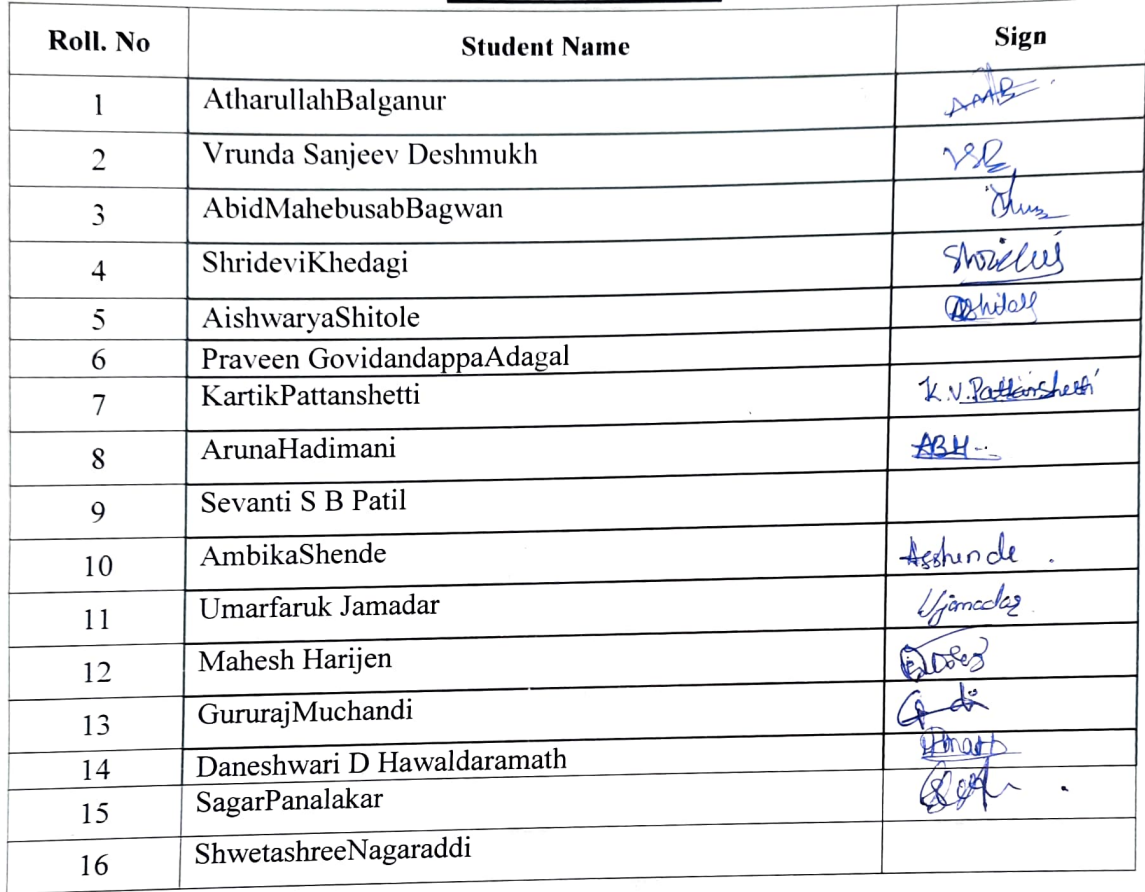 Roll. No Student Name Sign
1 AtharullahBalganur
2 Vrunda Sanjeev Deshmukh
3 AbidMahebusabBagwan
4 ShrideviKhedagi
5 AishwaryaShitole
6 Praveen GovidandappaAdagal
7 KartikPattanshetti K.V.Pattanshetti
8 ArunaHadimani ABH
9 Sevanti S B Patil
10 AmbikaShende
11 Umarfaruk Jamadar
12 Mahesh Harijen
13 GururajMuchandi
14 Daneshwari D Hawaldaramath
15 SagarPanalakar
16 ShwetashreeNagaraddi